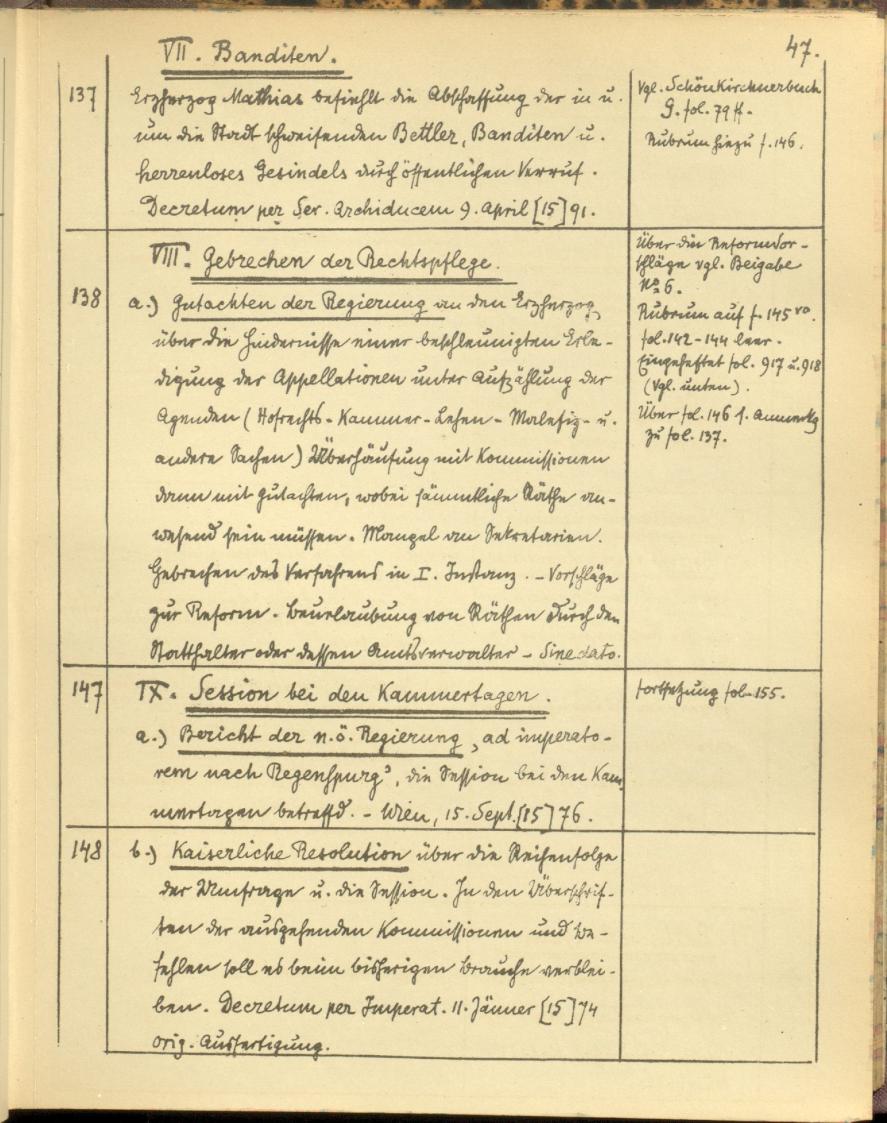 47.
VII. Banditen.
137 Erzherzog Mathias befiehlt die Abschaffung der in u.
um die Stadt schweifenden Bettler, Banditen u.
herrenloses Gesindels durch öffentlichen Verruf.
Decretum per Ser. Archiducem 9. April [15]91.
Vgl. Schönkirchnerbuch
G. fol. 79 ff.
Rubrum hiezu f. 146.
VIII. Gebrechen der Rechtspflege.
138 a.) Gutachten der Regierung an den Erzherzog
über die Hindernisse einer beschleunigten Erle-
digung der Appellationen unter Aufzählung der
Agenden (Hofrechts- Kammer- Lehen- Malefiz- u.
andere Sachen) Überhäufung mit Kommissionen
dann mit Gutachten, wobei sämmtliche Räthe an-
wesend sein müssen. Mangel an Sekretarien.
Gebrechen des Verfahrens in I. Instanz. - Vorschläge
zur Reform. Beurlaubung von Räthen durch den
Statthalter oder dessen Amtsverwalter - Sine dato.
Über die Reformvor-
schläge vgl. Beigabe
No 6.
Rubrum auf f. 145 vo.
fol. 142-144 leer.
Eingeheftet fol. 917 u. 918
(vgl. unten).
Über fol. 146 s. Anmerkg
zu fol. 137.
147 IX. Session bei den Kammertagen.
a.) Bericht der n.ö. Regierung „ad imperato-
rem nach Regenspurg“, die Session bei den Kam-
mertagen betreffd. - Wien, 15. Sept. [15]76.
Fortsetzung fol. 155.
148 b.) Kaiserliche Resolution über die Reihenfolge
der Umfrage u. die Session. In den Überschrif-
ten der ausgehenden Kommissionen und Be-
fehlen soll es beim bisherigen Brauche verblei-
ben. Decretum per Imperat. 11. Jänner [15]74
orig. Ausfertigung.